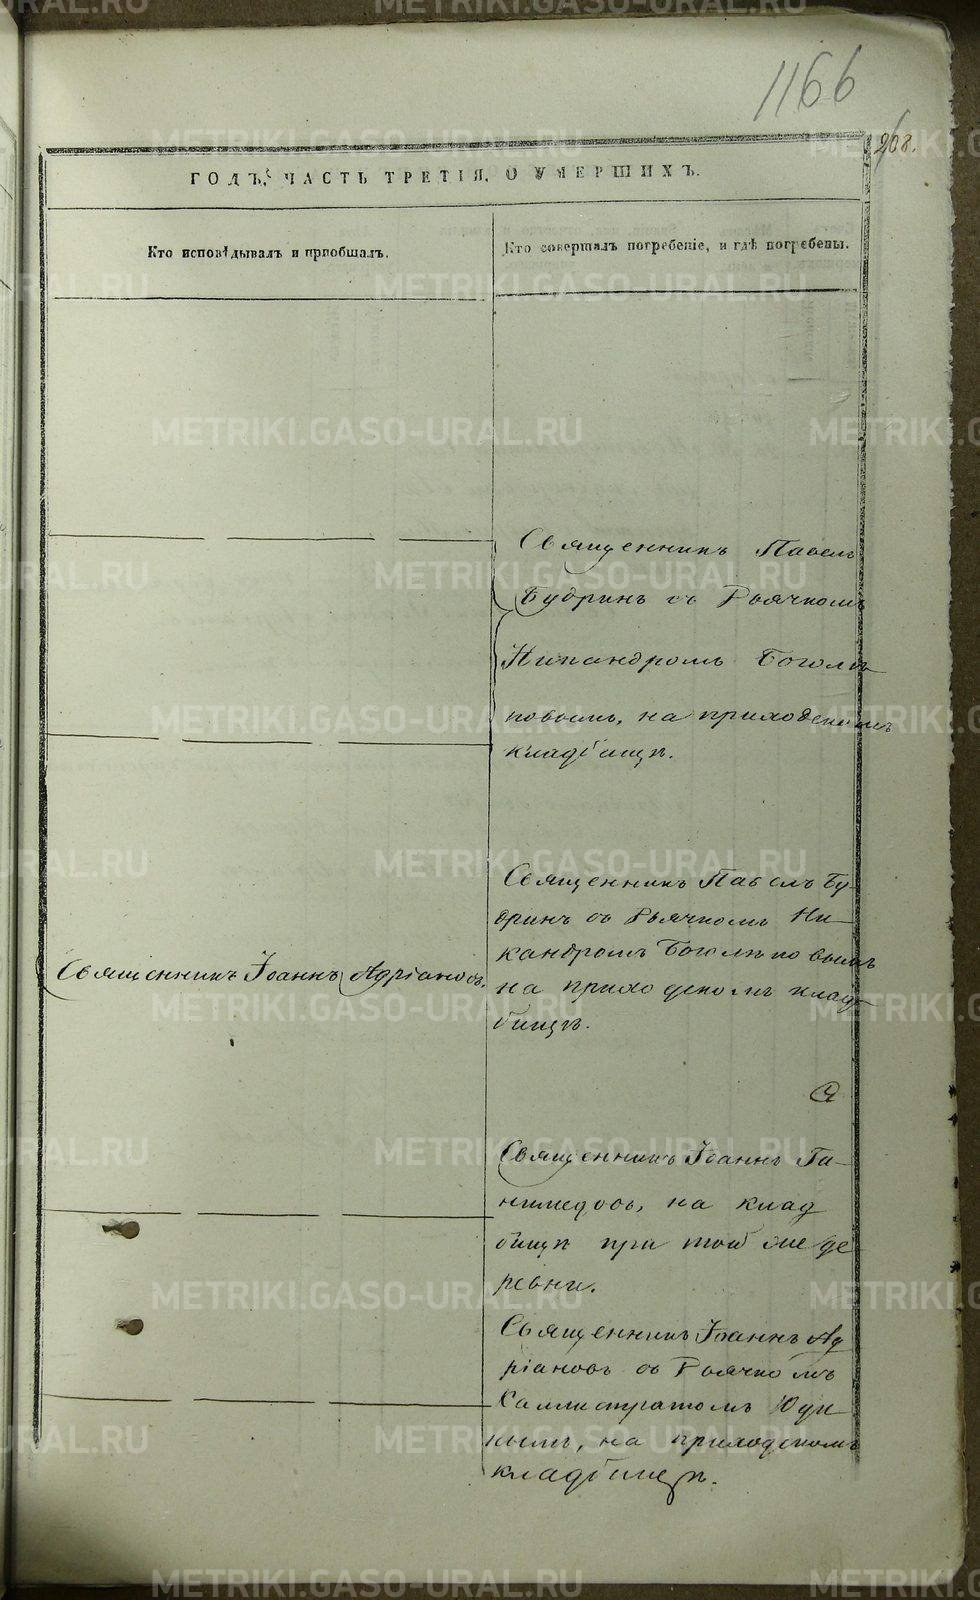 1166
268.
ГОДЪ, ЧАСТЬ ТРЕТІЯ, О УМЕРШИХЪ.
Кто исповѣдывалъ и пріобщалъ.
Кто совершалъ погребеніе, и гдѣ погребены.
Священникъ Павелъ
Будринъ съ Дьячкомъ
Никандромъ Боголѣ
повымъ, на приходскомъ
кладбищѣ.
Священникъ Іоаннъ Адріановъ.
Священникъ Павелъ Бу-
дринъ съ Дьячкомъ Ни-
кандромъ Боголѣповымъ
на приходскомъ клад-
бищѣ.
Священникъ Іоаннъ Га-
нимедовъ, на клад
бищѣ при той же де
ревни.
Священникъ Іоаннъ Ад
ріановъ съ Дьячкомъ
Каллистратомъ Юди-
нымъ, на приходскомъ
кладбищѣ.
METRIKI.GASO-URAL.RU